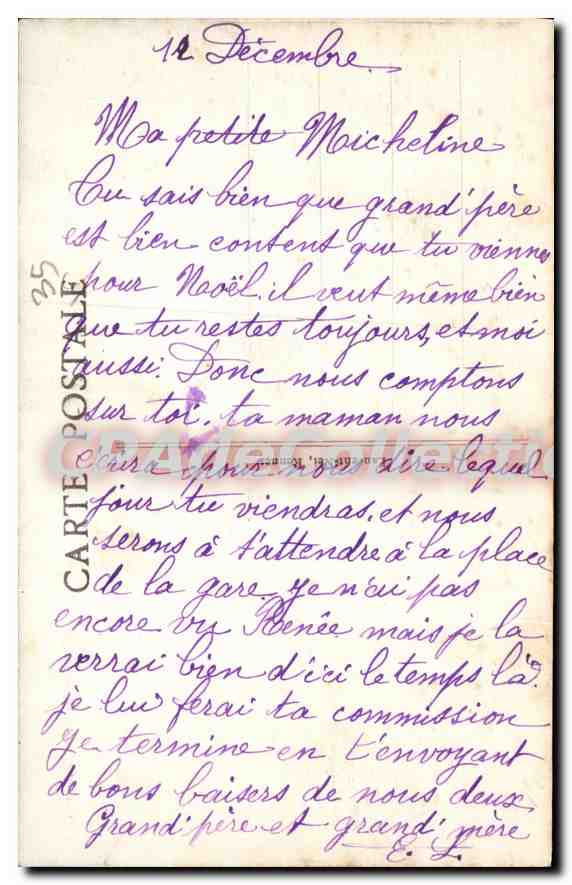 12 Décembre
Ma petite Micheline
Tu sais bien que grand'père
est bien content que tu viennes
pour Noël. il veut même bien
que tu restes toujours, et moi
aussi. Donc nous comptons
sur toi. ta maman nous
écrira pour nous dire lequel
jour tu viendras. et nous
serons à t'attendre à la place
de la gare. je n'ai pas
encore vu Renée mais je la
verrai bien d'ici le temps là.
je lui ferai ta commission
Je termine en t'envoyant
de bons baisers de nous deux
Grand'père et grand'mère
E. L.
CARTE POSTALE
35
CPAdeCollection